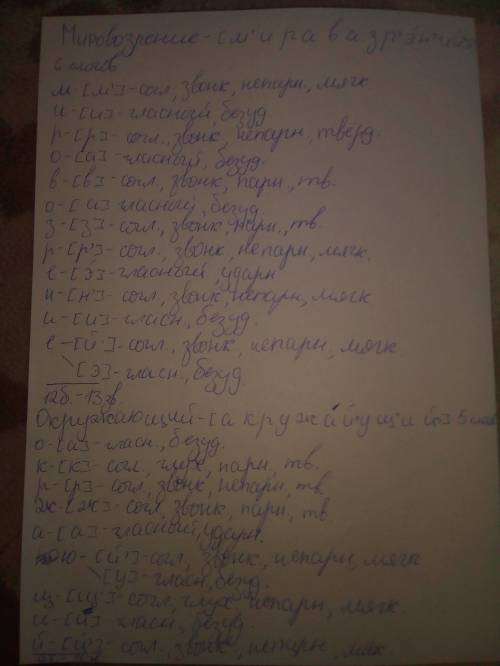 Мировозрение-[м'и р а в а з р'э́ н'и й'э]
6 слогов
м-[м']-согл, звонк, непарн., мягк
и-[и]-гласный, безуд.
р-[р]-согл., звонк, непарн, твёрд.
о-[а]-гласный, безуд.
в-[в]-согл., звонк, парн., тв.
о-[а]-гласный, безуд.
з-[з]-согл., звонк, парн., тв.
р-[р']-согл., звонк, непарн., мягк.
е-[э́]-гласный, ударн
н-[н']-согл, звонк, непарн, мягк
и-[и]-гласн, безуд.
е-[й']-согл., звонк, непарн, мягк
[э]-гласн., безуд
12б.-13зв.
Окружающий-[а к р у ж а́ й'у щ'и й'] 5
о-[а]-гласн., безуд.
к-[к]-согл., глух., парн., тв.
р-[р]-согл, звонк, непарн, тв
ж-[ж]-согл, звонк, парн, тв
а-[а]-гласный, ударн.
ю-[й']-согл, звонк, непарн, мягк
[у]-гласн, безуд.
щ-[щ']-согл, глух, непарн, мягк
и-[и]-гласн, безуд.
й-[й']-согл., звонк, непарн, мяк.